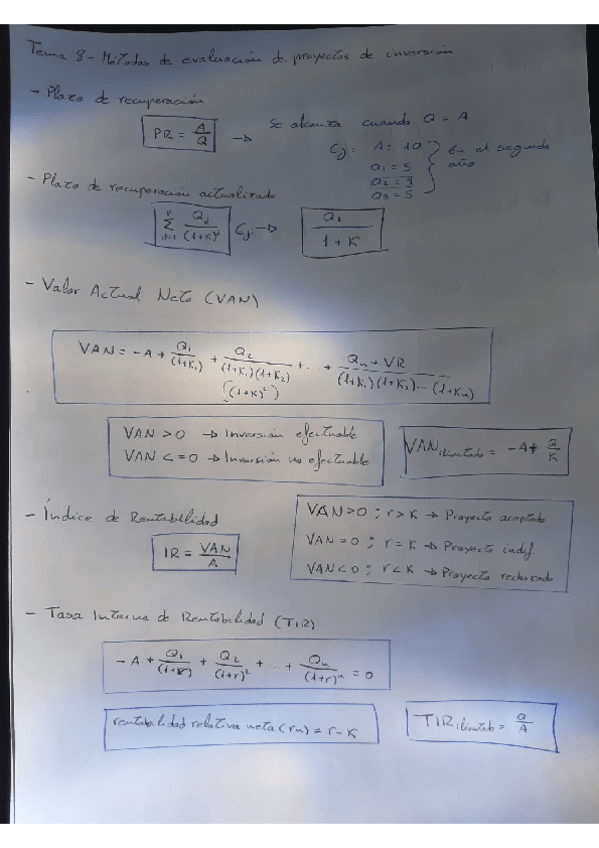 Tema 8 - Métodos de evaluación de proyectos de inversión
- Plazo de recuperación
PR = A/Q → Se alcanza cuando Q = A
Cj= A= 10
Q1 = 5
Q2 = 9
Q3 = 5
} En el segundo año
- Plazo de recuperación actualizado
∑ Qj/(1+K)^j Cj → Q1/(1+K)
- Valor Actual Neto (VAN)
VAN = -A + Q1/(1+K1) + Q2/((1+K1)(1+K2)) + ... + (Qn + VR)/((1+K1)(1+K2)...(1+Kn))
((1+K)²)
VAN > 0 → Inversión efectuable
VAN <=0 → Inversión no efectuable
VAN ilimitado = -A + Q/K
- Índice de Rentabilidad
IR = VAN/A
VAN>0 ; r>K → Proyecto aceptado
VAN = 0 ; r = K → Proyecto indif.
VAN<0 ; r<K → Proyecto rechazado
- Tasa Interna de Rentabilidad (TIR)
-A + Q1/(1+r) + Q2/(1+r)² + ... + Qn/(1+r)^n = 0
rentabilidad relativa neta (rn) = r - K
TIR ilimitado = Q/A